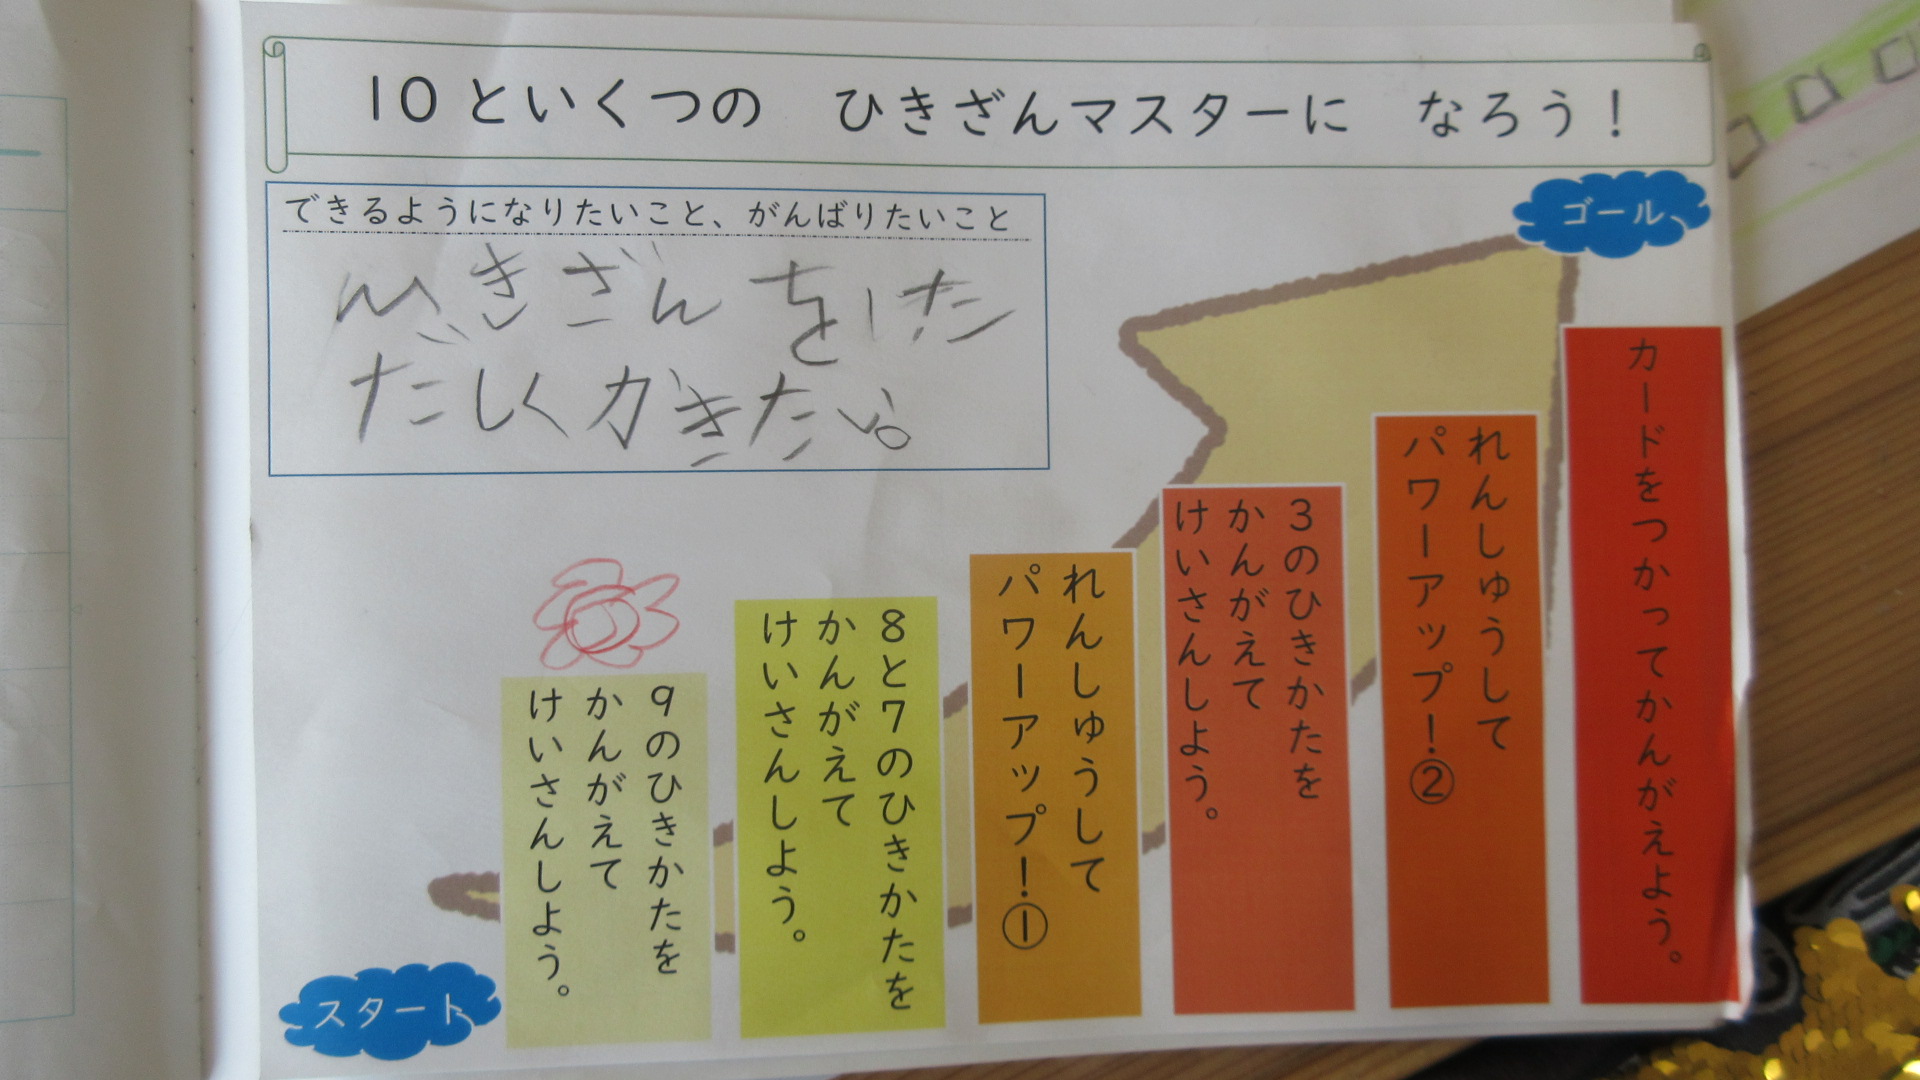 10といくつの ひきざんマスターに なろう！
できるようになりたいこと、がんばりたいこと
ひきざんをた
だしくかきたい。
ゴール
カードをつかってかんがえよう。
れんしゅうして
パワーアップ！②
3のひきかたを
かんがえて
けいさんしよう。
れんしゅうして
パワーアップ！①
8と7のひきかたを
かんがえて
けいさんしよう。
9のひきかたを
かんがえて
けいさんしよう。
スタート